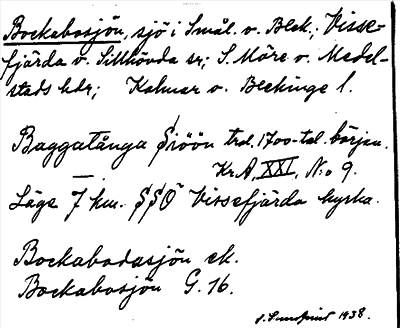 Bockabosjön, sjö i Smål. o. Blek.; Visse-
fjärda o. Sillhövda sr; S. Möre o. Medel-
stads hdr; Kalmar o. Blekinge l.
Baggatånga Siöön trol. 1700-tal. början.
Kr.A, XXI, No 9.
Läge 7 km. SSO Vissefjärda kyrka.
Bockabodasjön ek.
Bockabosjön G. 16.
1938.